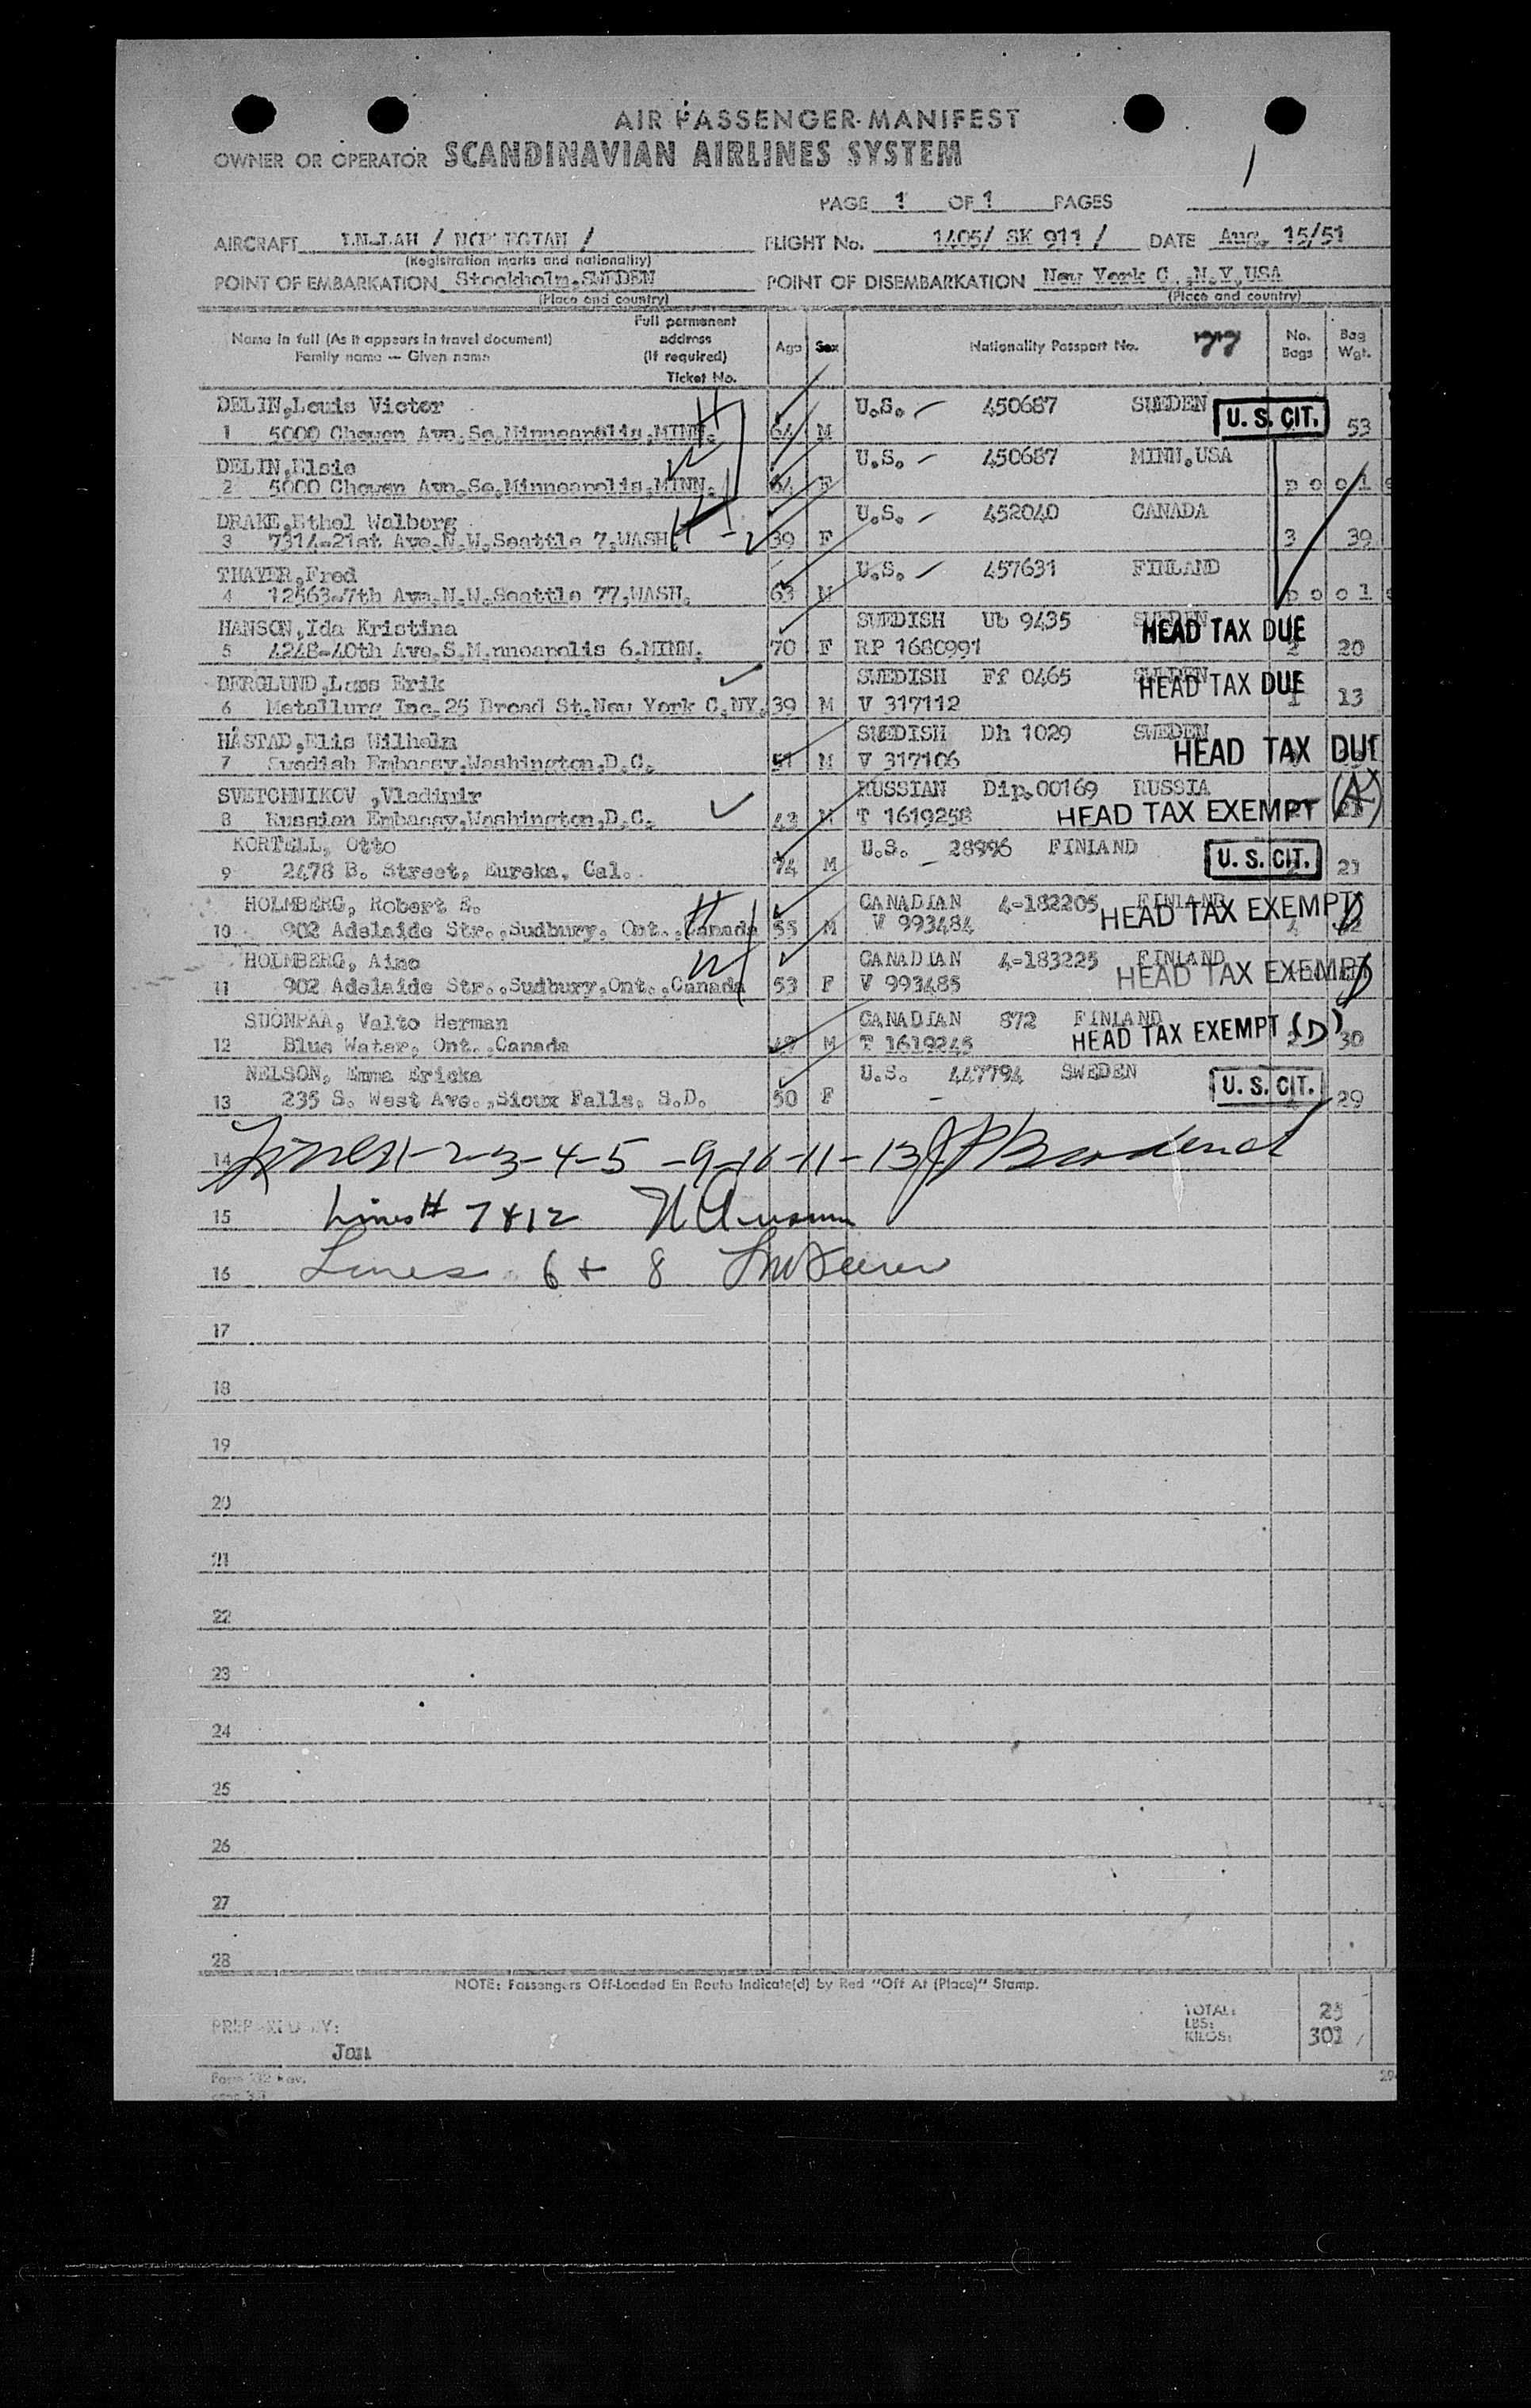 AIR PASSENGER MANIFEST
OWNER OR OPERATOR SCANDINAVIAN AIRLINES SYSTEM
PAGE 1 OF 1 PAGES
AIRCRAFT LN-LAH / / FLIGHT No. 1405/ SK 911 / DATE Aug. 15/51
(Registration marks and nationality)
POINT OF EMBARKATION Stockholm,SWEDEN POINT OF DISEMBARKATION New York C.,N.Y,USA
(Place and country) (Place and country)
Name in full (As it appears in travel document) Family name — Given name Full permanent address (If required) Ticket No. Age Sex Nationality Passport No. 77 No. Bags Bag Wgt.
DELIN,Louis Victor U.S. 450687 SWEDEN U. S. CIT.
1 5000 Chowen Ave.So.Minneapolis,MINN. 64 M 53
DELIN,Elsie U.S. 450687 MINN.USA
2 5000 Chowen Ave.So.Minneapolis,MINN. 64 F p o o l
DRAKE,Ethel Walborg U.S. 452040 CANADA
3 7314-21st Ave.N.W.Seattle 7,WASH 39 F 3 39
THAYER,Fred U.S. 457631 FINLAND
4 12563-7th Ave.N.W.Seattle 77,WASH. 63 M p o o l
HANSON,Ida Kristina SWEDISH Ub 9435 SWEDEN HEAD TAX DUE
5 4248-40th Ave.S.M.nneapolis 6.MINN. 70 F RP 1680991 2 20
BERGLUND,Lars Erik SWEDISH Ff 0465 SWEDEN HEAD TAX DUE
6 Metallurg Inc.25 Broad St.New York C.NY. 39 M V 317112 1 13
HÅSTAD,Elis Wilhelm SWEDISH Dh 1029 SWEDEN HEAD TAX DUE
7 Swedish Embassy,Washington,D.C. 51 M V 317106
SVETCHNIKOV ,Vladimir RUSSIAN Dip.00169 RUSSIA HEAD TAX EXEMPT (A)
8 Russian Embassy,Washington,D.C. 43 M T 1619258
KORTELL, Otto U.S. 28996 FINLAND U. S. CIT.
9 2478 B. Street, Eureka, Cal. 74 M 21
HOLMBERG, Robert E. CANADIAN 4-182205 FINLAND HEAD TAX EXEMPT D
10 902 Adelaide Str.,Sudbury, Ont.,Canada 55 M V 993484
HOLMBERG, Aino CANADIAN 4-183225 FINLAND HEAD TAX EXEMPT D
11 902 Adelaide Str.,Sudbury,Ont.,Canada 53 F V 993485
SUONPAA, Valto Herman CANADIAN 872 FINLAND HEAD TAX EXEMPT (D)
12 Blue Water, Ont.,Canada 47 M T 1619245 2 30
NELSON, Emma Ericka U.S. 447794 SWEDEN U. S. CIT.
13 235 S. West Ave.,Sioux Falls, S.D. 50 F 29
14 Lines 1-2-3-4-5 -9-10-11-13
15 Lines # 7 & 12
16 Lines 6 + 8
17
18
19
20
21
22
23
24
25
26
27
28
NOTE: Passengers Off-Loaded En Route Indicate(d) by Red "Off At (Place)" Stamp.
PREPARED BY: TOTAL: LBS: KILOS: 301